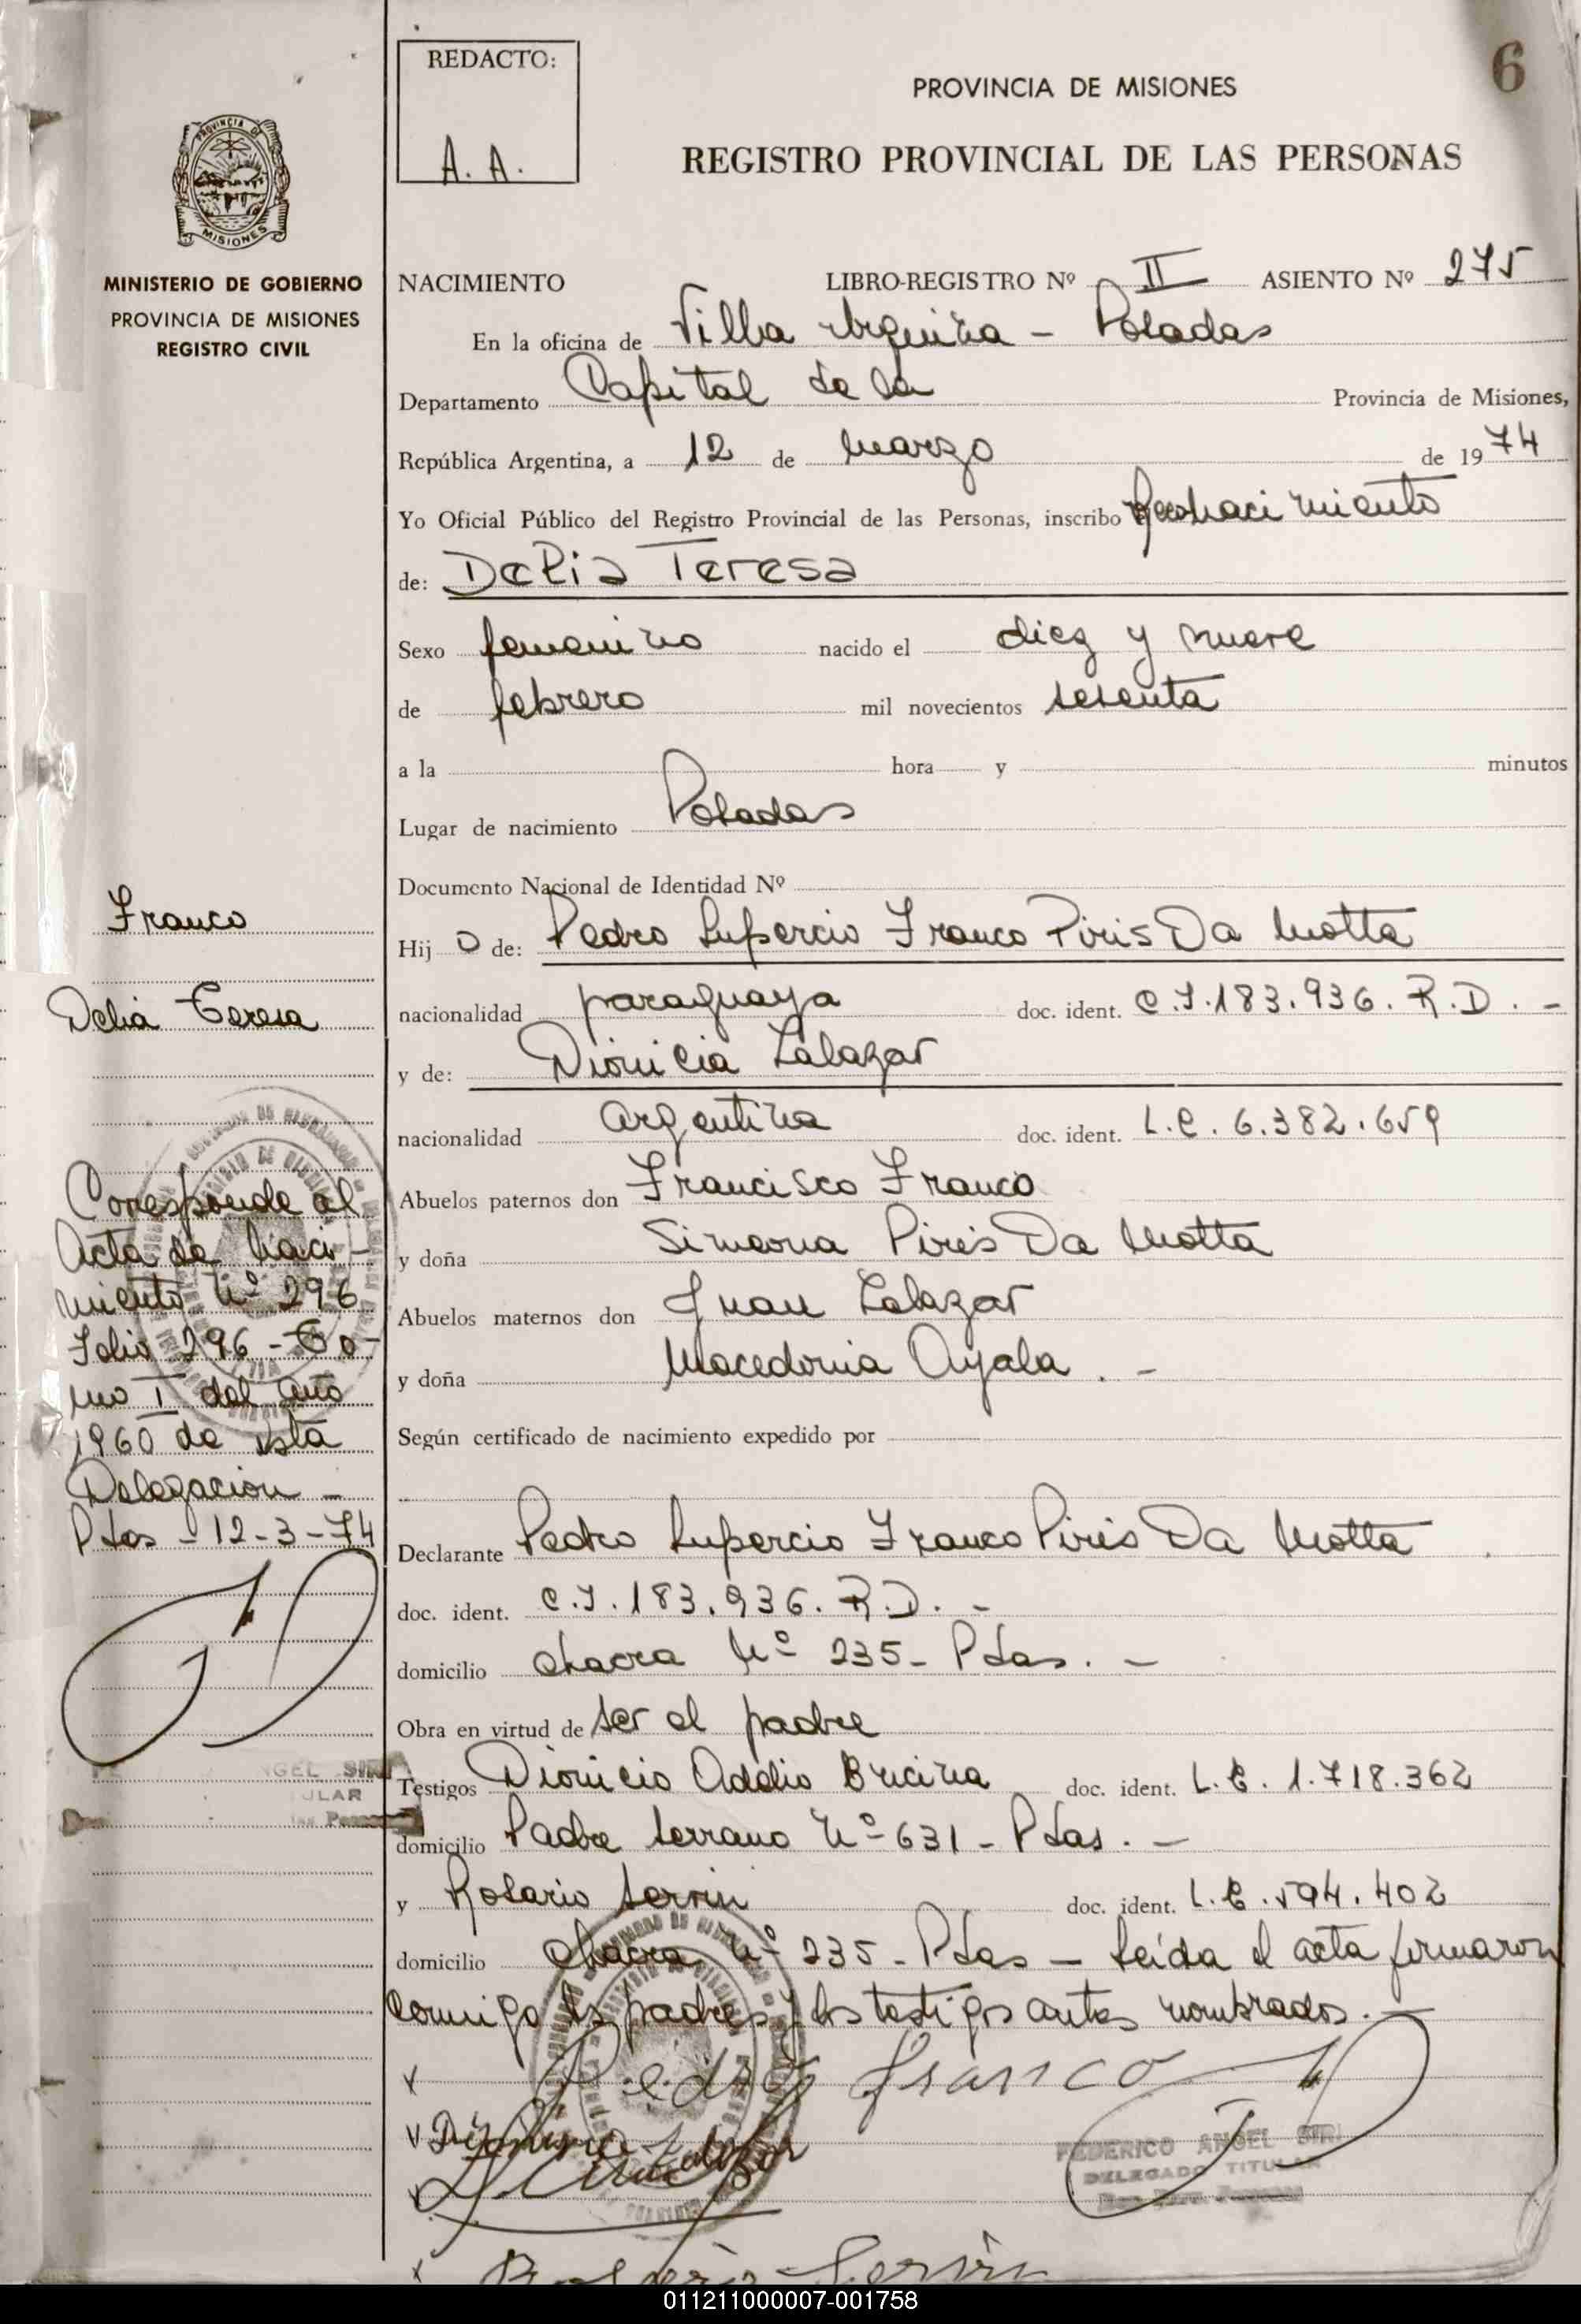 6
REDACTO:
A. A.
PROVINCIA DE MISIONES
REGISTRO PROVINCIAL DE LAS PERSONAS
PROVINCIA DE
MISIONES
MINISTERIO DE GOBIERNO
PROVINCIA DE MISIONES
REGISTRO CIVIL
NACIMIENTO LIBRO-REGISTRO Nº II ASIENTO Nº 275
En la oficina de Villa Urquiza - Posadas
Departamento Capital de la Provincia de Misiones,
República Argentina, a 12 de marzo de 1974
Yo Oficial Público del Registro Provincial de las Personas, inscribo
de: Delia Teresa
Sexo femenino nacido el diez y nueve
de febrero mil novecientos sesenta
a la hora y minutos
Lugar de nacimiento Posadas
Documento Nacional de Identidad Nº
Hij a de: Pedro Lupercio Franco Piris Da Motta
nacionalidad paraguaya doc. ident. C.I. 183.936. R.D. -
y de: Dionicia Salazar
nacionalidad argentina doc. ident. L.C. 6.382.659
Abuelos paternos don Francisco Franco
y doña Simeona Piris Da Motta
Abuelos maternos don Juan Salazar
y doña Macedonia Ayala . -
Según certificado de nacimiento expedido por
Declarante Pedro Lupercio Franco Piris Da Motta
doc. ident. C.I. 183.936. R.D. -
domicilio chacra Nº 235 - Pdas. -
Obra en virtud de ser el padre
Testigos Dionicio Adelio doc. ident. L.E. 1.718.362
domicilio Padre Serrano Nº 631 - Pdas. -
y Rosario Servin doc. ident. L.E. 594.402
domicilio chacra Nº 235 - Pdas - Leída el acta firmaron
conmigo los padres y los testigos antes nombrados. -
Franco
Delia Teresa
Corresponde al
Acta de naci-
miento Nº 296
Folio 296 - To-
mo I del año
1960 de esta
Delegacion -
Pdas - 12-3-74
Pedro Franco
Dionicia Salazar
FEDERICO ANGEL SIRI
DELEGADO TITULAR
Rosario Servin
011211000007-001758